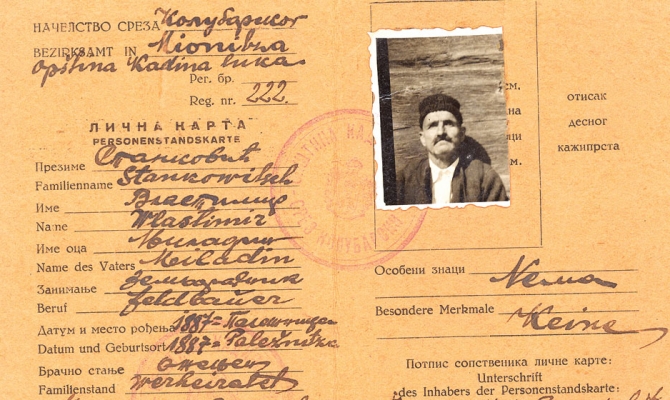 НАЧЕЛСТВО СРЕЗА Колубарског
BEZIRKSAMT IN Mionitza
Opština Kadina Luka
Рег. бр.
Reg. nr. 222.
ЛИЧНА КАРТА
PERSONENSTANDSKARTE
Презиме Станковић
Familienname Stankowitsch
Име Властимир
Name Wlastimir
Име оца Миладин
Name des Vaters Miladin
Занимање земљорадник
Beruf feldbauer
Датум и место рођења 1887 =
Datum und Geburtsort 1887 =
Врачно стање ожењен
Familienstand verheiratet
ем.
на
ци
м.
отисак
десног
кажипрста
Особени знаци Нема
Besondere Merkmale Keine
Потпис сопственика личне карте:
Unterschrift
des Inhabers der Personenstandskarte: